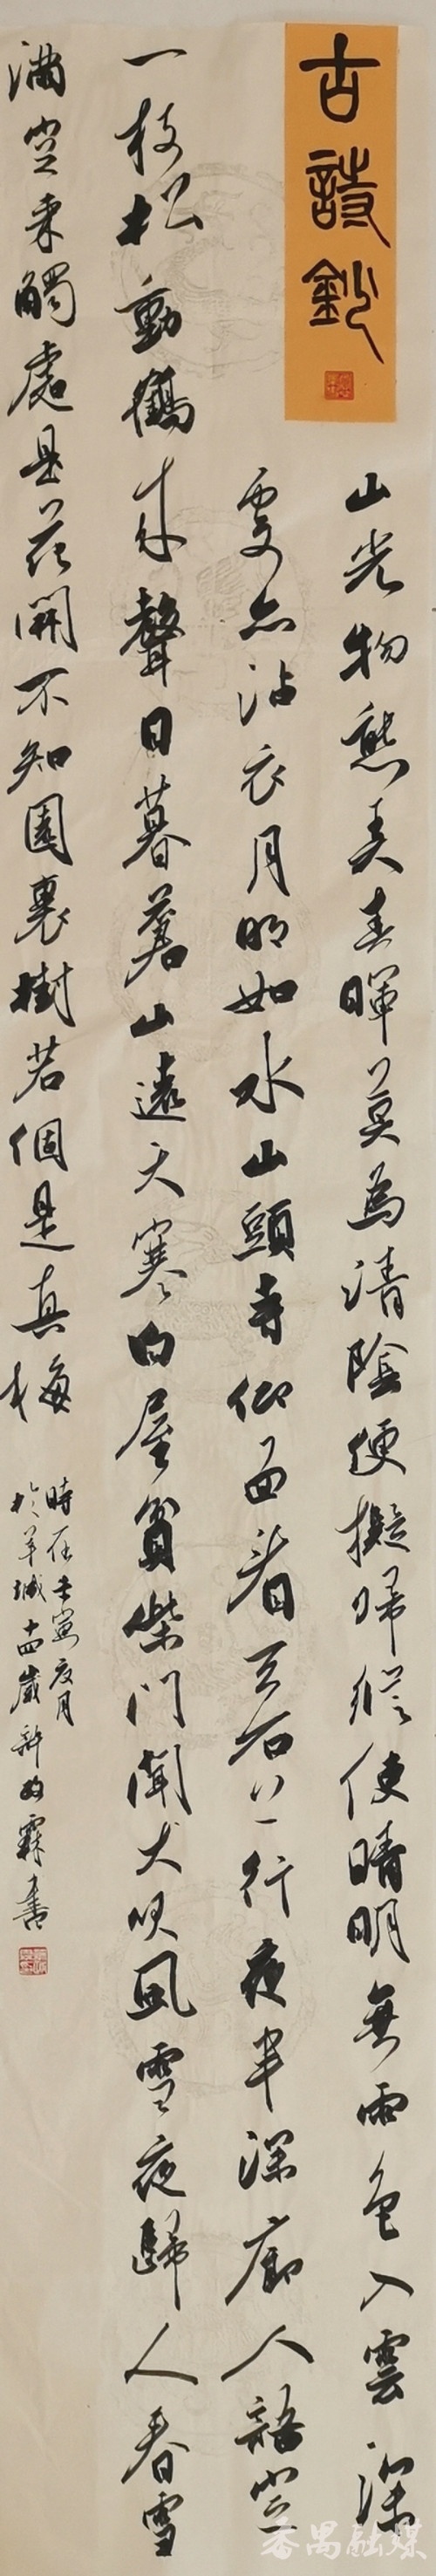 古詩鈔
山光物態弄春暉莫為清陰便擬歸縱使晴明無雨色入雲深
處亦沾衣月明如水山頭寺仰面看天石上行夜半深廊人語定
一枝松動鶴來聲日暮蒼山遠天寒白屋貧柴門聞犬吠風雪夜歸人春雪
滿空來觸處是花開不知園裏樹若個是真梅
時在壬寅夏月
於羊城十四歲許霖書
番禺融媒